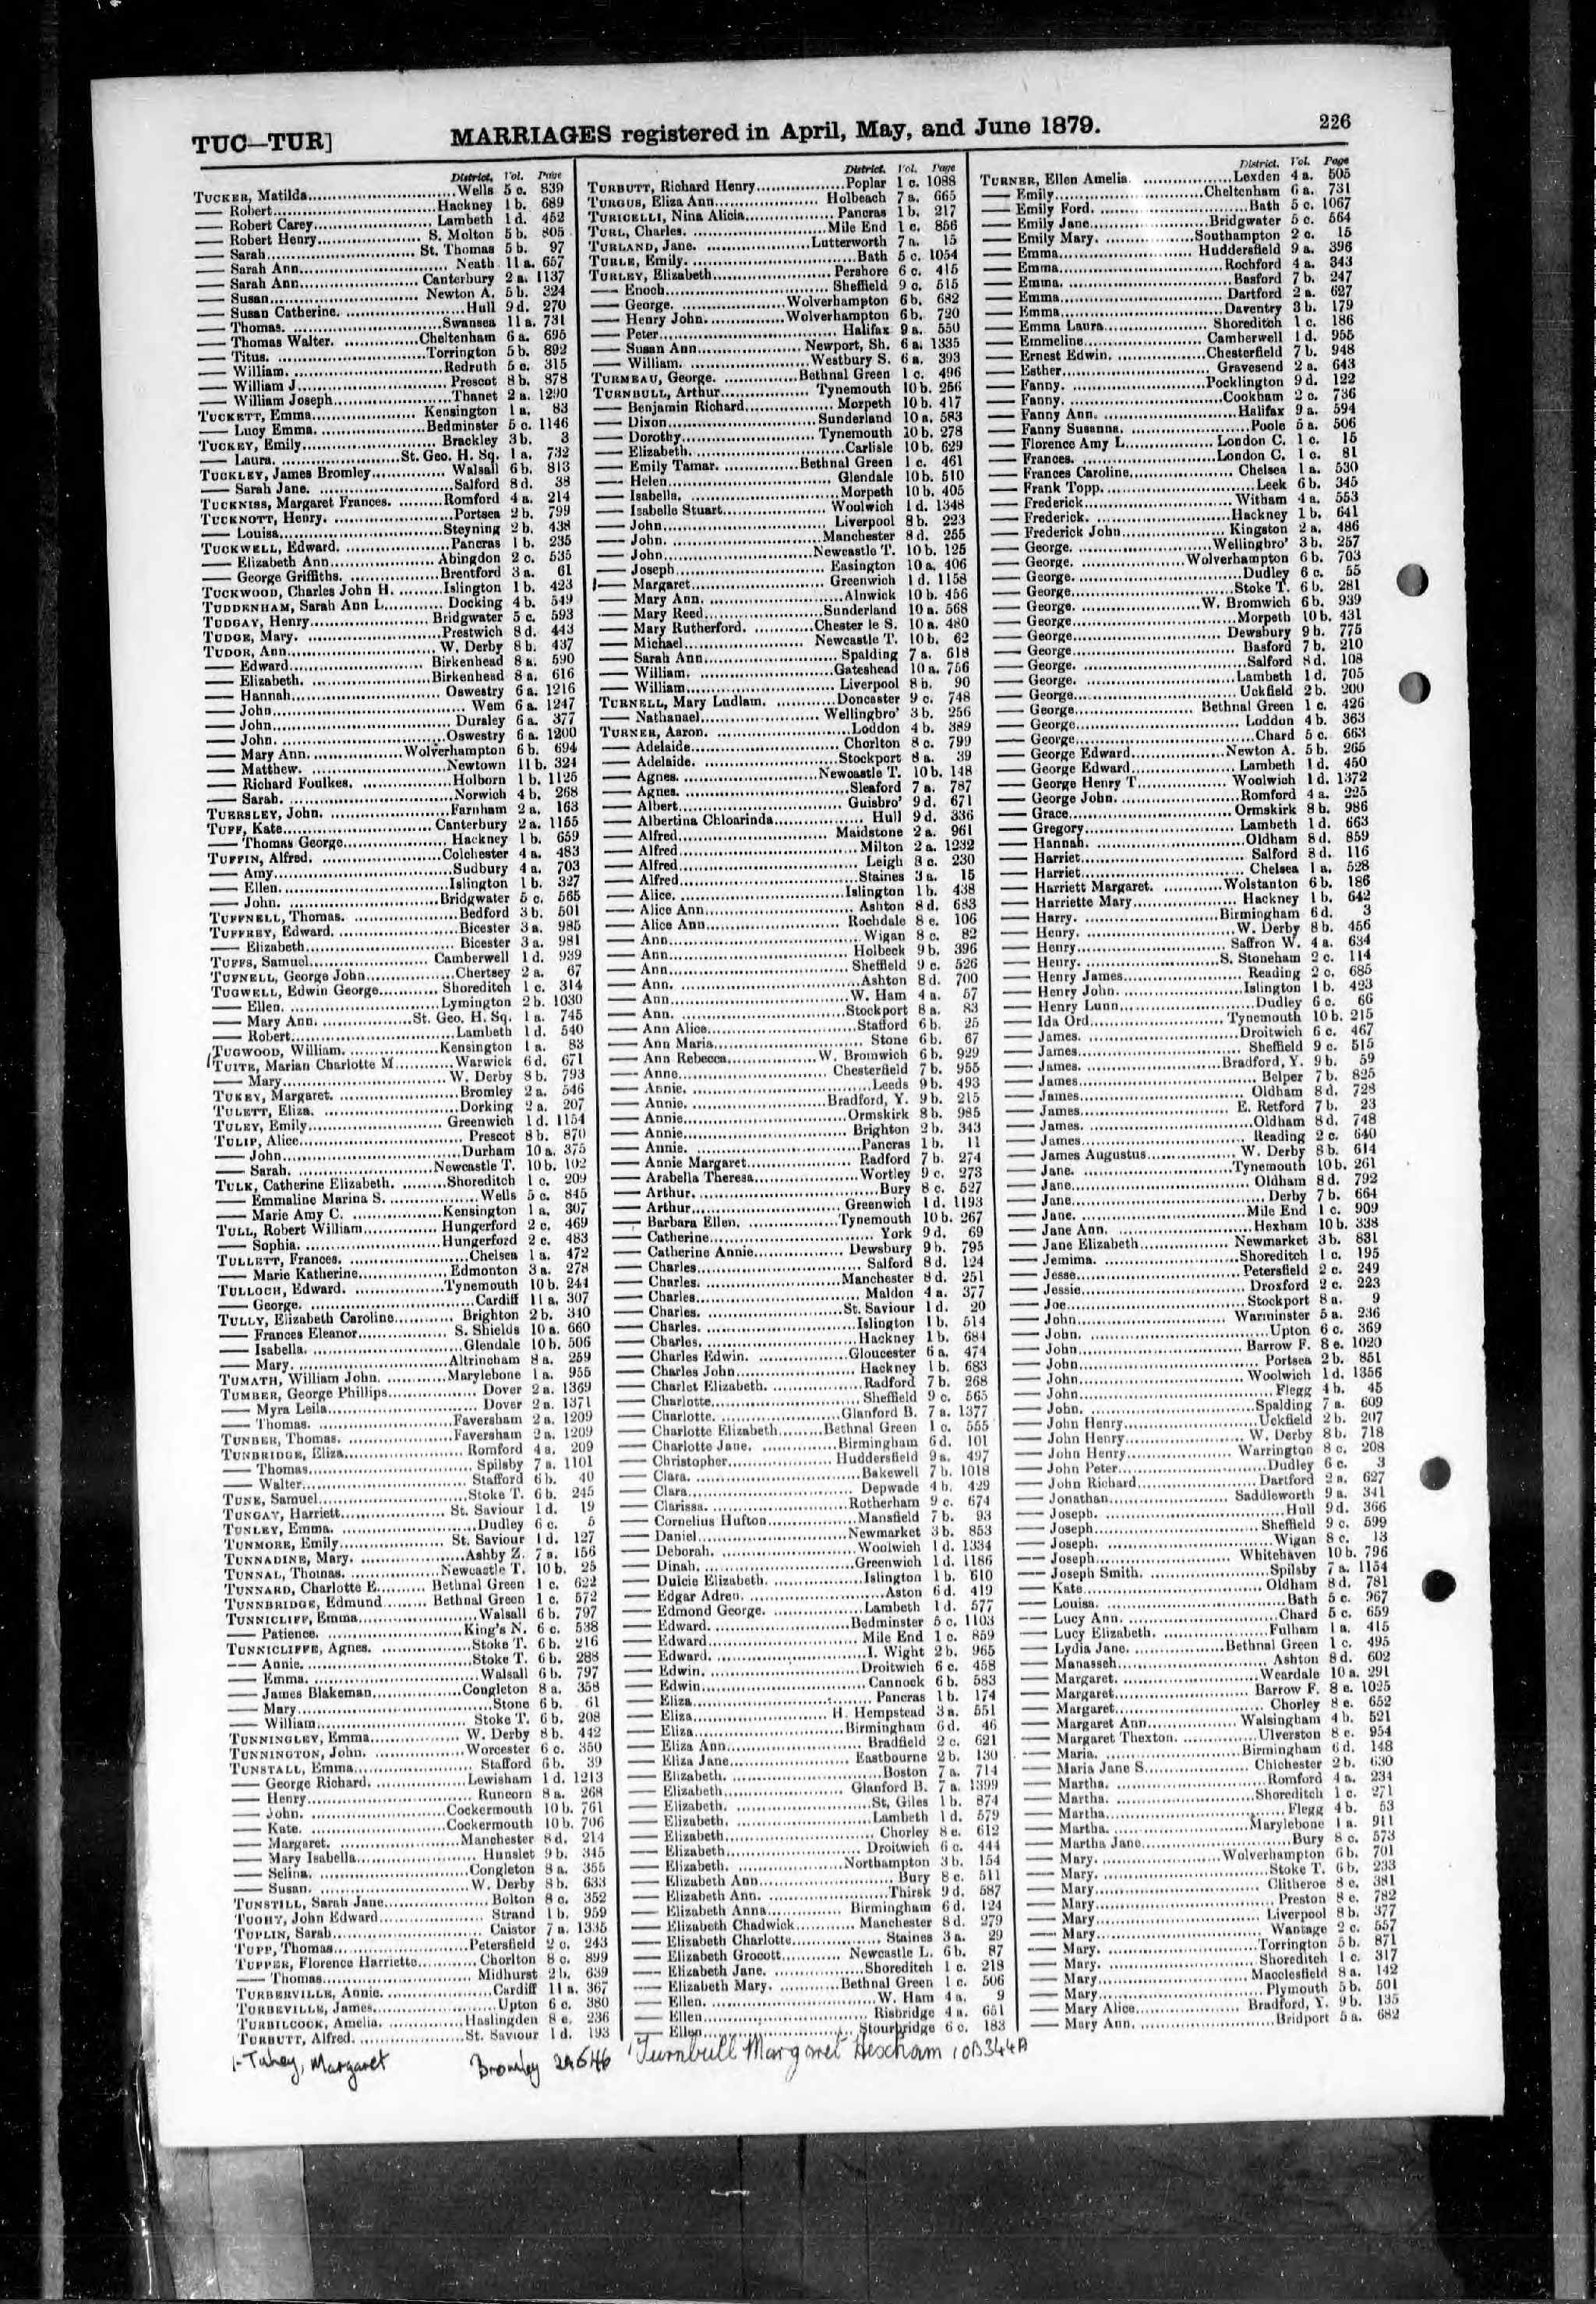 TUC—TUR]
MARRIAGES registered in April, May, and June 1879.
226
District. Vol. Page
TUCKER, Matilda Wells 5 c. 839
— Robert Hackney 1 b. 689
— Robert Carey Lambeth 1 d. 452
— Robert Henry S. Molton 5 b. 805
— Sarah St. Thomas 5 b. 97
— Sarah Ann Neath 11 a. 657
— Sarah Ann Canterbury 2 a. 1137
— Susan Newton A. 5 b. 324
— Susan Catherine. Hull 9 d. 270
— Thomas. Swansea 11 a. 731
— Thomas Walter. Cheltenham 6 a. 695
— Titus. Torrington 5 b. 892
— William. Redruth 5 c. 315
— William J. Prescot 8 b. 878
— William Joseph Thanet 2 a. 1290
TUCKETT, Emma Kensington 1 a. 83
— Lucy Emma Bedminster 5 c. 1146
TUCKEY, Emily Brackley 3 b. 3
— Laura. St. Geo. H. Sq. 1 a. 732
TUCKLEY, James Bromley Walsall 6 b. 813
— Sarah Jane. Salford 8 d. 38
TUCKNISS, Margaret Frances. Romford 4 a. 214
TUCKNOTT, Henry. Portsea 2 b. 799
— Louisa Steyning 2 b. 438
TUCKWELL, Edward. Pancras 1 b. 235
— Elizabeth Ann Abingdon 2 c. 535
— George Griffiths. Brentford 3 a. 61
TUCKWOOD, Charles John H. Islington 1 b. 423
TUDDENHAM, Sarah Ann L. Docking 4 b. 549
TUDGAY, Henry Bridgwater 5 c. 593
TUDGE, Mary. Prestwich 8 d. 443
TUDOR, Ann W. Derby 8 b. 437
— Edward Birkenhead 8 a. 590
— Elizabeth. Birkenhead 8 a. 616
— Hannah Oswestry 6 a. 1216
— John Wem 6 a. 1247
— John Dursley 6 a. 377
— John. Oswestry 6 a. 1200
— Mary Ann Wolverhampton 6 b. 694
— Matthew. Newtown 11 b. 324
— Richard Foulkes. Holborn 1 b. 1125
— Sarah. Norwich 4 b. 268
TUERSLEY, John. Farnham 2 a. 163
TUFF, Kate Canterbury 2 a. 1155
— Thomas George Hackney 1 b. 659
TUFFIN, Alfred. Colchester 4 a. 483
— Amy Sudbury 4 a. 703
— Ellen. Islington 1 b. 327
— John. Bridgwater 5 c. 565
TUFFNELL, Thomas. Bedford 3 b. 501
TUFFREY, Edward. Bicester 3 a. 985
— Elizabeth Bicester 3 a. 981
TUFFS, Samuel Camberwell 1 d. 939
TUFNELL, George John Chertsey 2 a. 67
TUGWELL, Edwin George Shoreditch 1 c. 314
— Ellen. Lymington 2 b. 1030
— Mary Ann. St. Geo. H. Sq. 1 a. 745
— Robert Lambeth 1 d. 540
TUGWOOD, William. Kensington 1 a. 83
TUITE, Marian Charlotte M Warwick 6 d. 671
— Mary W. Derby 8 b. 793
TUKEY, Margaret. Bromley 2 a. 546
TULETT, Eliza. Dorking 2 a. 207
TULEY, Emily Greenwich 1 d. 1154
TULIP, Alice Prescot 8 b. 870
— John Durham 10 a. 375
— Sarah. Newcastle T. 10 b. 102
TULK, Catherine Elizabeth. Shoreditch 1 c. 209
— Emmaline Marina S. Wells 5 c. 845
— Marie Amy C. Kensington 1 a. 307
TULL, Robert William Hungerford 2 c. 469
— Sophia. Hungerford 2 c. 483
TULLETT, Frances. Chelsea 1 a. 472
— Marie Katherine Edmonton 3 a. 278
TULLOCH, Edward. Tynemouth 10 b. 244
— George. Cardiff 11 a. 307
TULLY, Elizabeth Caroline Brighton 2 b. 340
— Frances Eleanor S. Shields 10 a. 660
— Isabella. Glendale 10 b. 506
— Mary. Altrincham 8 a. 259
TUMATH, William John. Marylebone 1 a. 955
TUMBER, George Phillips Dover 2 a. 1369
— Myra Leila Dover 2 a. 1371
— Thomas. Faversham 2 a. 1209
TUNBER, Thomas. Faversham 2 a. 1209
TUNBRIDGE, Eliza Romford 4 a. 209
— Thomas Spilsby 7 a. 1101
— Walter Stafford 6 b. 40
TUNE, Samuel Stoke T. 6 b. 245
TUNGAY, Harriett St. Saviour 1 d. 19
TUNLEY, Emma. Dudley 6 c. 5
TUNMORE, Emily St. Saviour 1 d. 127
TUNNADINE, Mary. Ashby Z. 7 a. 156
TUNNAL, Thomas. Newcastle T. 10 b. 25
TUNNARD, Charlotte E. Bethnal Green 1 c. 622
TUNNBRIDGE, Edmund Bethnal Green 1 c. 572
TUNNICLIFF, Emma Walsall 6 b. 797
— Patience. King's N. 6 c. 538
TUNNICLIFFE, Agnes. Stoke T. 6 b. 216
— Annie. Stoke T. 6 b. 288
— Emma. Walsall 6 b. 797
— James Blakeman Congleton 8 a. 358
— Mary Stone 6 b. 61
— William Stoke T. 6 b. 208
TUNNINGLEY, Emma W. Derby 8 b. 442
TUNNINGTON, John. Worcester 6 c. 350
TUNSTALL, Emma Stafford 6 b. 39
— George Richard. Lewisham 1 d. 1213
— Henry Runcorn 8 a. 268
— John. Cockermouth 10 b. 761
— Kate. Cockermouth 10 b. 706
— Margaret. Manchester 8 d. 214
— Mary Isabella Hunslet 9 b. 345
— Selina. Congleton 8 a. 355
— Susan. W. Derby 8 b. 633
TUNSTILL, Sarah Jane Bolton 8 c. 352
TUOHY, John Edward Strand 1 b. 959
TUPLIN, Sarah Caistor 7 a. 1335
TUPP, Thomas Petersfield 2 c. 243
TUPPER, Florence Harriette Chorlton 8 c. 899
— Thomas Midhurst 2 b. 639
TURBERVILLE, Annie. Cardiff 11 a. 367
TURBEVILLE, James Upton 6 c. 380
TURBILCOCK, Amelia. Haslingden 8 e. 236
TURBUTT, Alfred. St. Saviour 1 d. 193
District. Vol. Page
TURBUTT, Richard Henry Poplar 1 c. 1088
TURGUS, Eliza Ann Holbeach 7 a. 665
TURICELLI, Nina Alicia Pancras 1 b. 217
TURL, Charles. Mile End 1 c. 856
TURLAND, Jane. Lutterworth 7 a. 15
TURLE, Emily. Bath 5 c. 1054
TURLEY, Elizabeth Pershore 6 c. 415
— Enoch Sheffield 9 c. 515
— George. Wolverhampton 6 b. 682
— Henry John. Wolverhampton 6 b. 720
— Peter Halifax 9 a. 550
— Susan Ann Newport, Sh. 6 a. 1335
— William. Westbury S. 6 a. 393
TURMEAU, George. Bethnal Green 1 c. 496
TURNBULL, Arthur Tynemouth 10 b. 256
— Benjamin Richard Morpeth 10 b. 417
— Dixon Sunderland 10 a. 583
— Dorothy Tynemouth 10 b. 278
— Elizabeth Carlisle 10 b. 629
— Emily Tamar. Bethnal Green 1 c. 461
— Helen Glendale 10 b. 510
— Isabella. Morpeth 10 b. 405
— Isabelle Stuart Woolwich 1 d. 1348
— John Liverpool 8 b. 223
— John. Manchester 8 d. 255
— John Newcastle T. 10 b. 125
— Joseph Easington 10 a. 406
— Margaret Greenwich 1 d. 1158
— Mary Ann. Alnwick 10 b. 456
— Mary Reed Sunderland 10 a. 568
— Mary Rutherford. Chester le S. 10 a. 480
— Michael Newcastle T. 10 b. 62
— Sarah Ann Spalding 7 a. 618
— William. Gateshead 10 a. 756
— William Liverpool 8 b. 90
TURNELL, Mary Ludlam. Doncaster 9 c. 748
— Nathanael Wellingbro' 3 b. 256
TURNER, Aaron. Loddon 4 b. 389
— Adelaide Chorlton 8 c. 799
— Adelaide. Stockport 8 a. 39
— Agnes. Newcastle T. 10 b. 148
— Agnes. Sleaford 7 a. 787
— Albert Guisbro' 9 d. 671
— Albertina Chloarinda Hull 9 d. 336
— Alfred Maidstone 2 a. 961
— Alfred Milton 2 a. 1232
— Alfred Leigh 8 c. 230
— Alfred Staines 3 a. 15
— Alice. Islington 1 b. 438
— Alice Ann Ashton 8 d. 683
— Alice Ann Rochdale 8 e. 106
— Ann Wigan 8 c. 82
— Ann Holbeck 9 b. 396
— Ann Sheffield 9 c. 526
— Ann. Ashton 8 d. 700
— Ann W. Ham 4 a. 57
— Ann. Stockport 8 a. 83
— Ann Alice Stafford 6 b. 25
— Ann Maria Stone 6 b. 67
— Ann Rebecca W. Bromwich 6 b. 929
— Anne Chesterfield 7 b. 955
— Annie. Leeds 9 b. 493
— Annie. Bradford, Y. 9 b. 215
— Annie Ormskirk 8 b. 985
— Annie Brighton 2 b. 343
— Annie. Pancras 1 b. 11
— Annie Margaret Radford 7 b. 274
— Arabella Theresa Wortley 9 c. 273
— Arthur. Bury 8 c. 527
— Arthur Greenwich 1 d. 1193
— Barbara Ellen. Tynemouth 10 b. 267
— Catherine York 9 d. 69
— Catherine Annie Dewsbury 9 b. 795
— Charles Salford 8 d. 124
— Charles. Manchester 8 d. 251
— Charles Maldon 4 a. 377
— Charles. St. Saviour 1 d. 20
— Charles. Islington 1 b. 514
— Charles. Hackney 1 b. 684
— Charles Edwin. Gloucester 6 a. 474
— Charles John Hackney 1 b. 683
— Charlet Elizabeth. Radford 7 b. 268
— Charlotte Sheffield 9 c. 565
— Charlotte. Glanford B. 7 a. 1377
— Charlotte Elizabeth Bethnal Green 1 c. 555
— Charlotte Jane. Birmingham 6 d. 101
— Christopher Huddersfield 9 a. 497
— Clara. Bakewell 7 b. 1018
— Clara Depwade 4 b. 429
— Clarissa. Rotherham 9 c. 674
— Cornelius Hufton Mansfield 7 b. 93
— Daniel Newmarket 3 b. 853
— Deborah. Woolwich 1 d. 1334
— Dinah. Greenwich 1 d. 1186
— Dulcie Elizabeth. Islington 1 b. 610
— Edgar Adren. Aston 6 d. 419
— Edmond George. Lambeth 1 d. 577
— Edward. Bedminster 5 c. 1103
— Edward Mile End 1 c. 859
— Edward. I. Wight 2 b. 965
— Edwin. Droitwich 6 c. 458
— Edwin Cannock 6 b. 583
— Eliza Pancras 1 b. 174
— Eliza H. Hempstead 3 a. 551
— Eliza Birmingham 6 d. 46
— Eliza Ann Bradfield 2 c. 621
— Eliza Jane Eastbourne 2 b. 130
— Elizabeth. Boston 7 a. 714
— Elizabeth Glanford B. 7 a. 1399
— Elizabeth. St. Giles 1 b. 874
— Elizabeth. Lambeth 1 d. 579
— Elizabeth Chorley 8 e. 612
— Elizabeth Droitwich 6 c. 444
— Elizabeth. Northampton 3 b. 154
— Elizabeth Ann Bury 8 c. 511
— Elizabeth Ann. Thirsk 9 d. 587
— Elizabeth Anna Birmingham 6 d. 124
— Elizabeth Chadwick Manchester 8 d. 279
— Elizabeth Charlotte Staines 3 a. 29
— Elizabeth Grocott Newcastle L. 6 b. 87
— Elizabeth Jane. Shoreditch 1 c. 218
— Elizabeth Mary. Bethnal Green 1 c. 506
— Ellen. W. Ham 4 a. 9
— Ellen Risbridge 4 a. 651
— Ellen Stourbridge 6 c. 183
District. Vol. Page
TURNER, Ellen Amelia. Lexden 4 a. 505
— Emily Cheltenham 6 a. 731
— Emily Ford. Bath 5 c. 1067
— Emily Jane Bridgwater 5 c. 564
— Emily Mary. Southampton 2 c. 15
— Emma Huddersfield 9 a. 396
— Emma Rochford 4 a. 343
— Emma. Basford 7 b. 247
— Emma Dartford 2 a. 627
— Emma Daventry 3 b. 179
— Emma Laura Shoreditch 1 c. 186
— Emmeline Camberwell 1 d. 955
— Ernest Edwin. Chesterfield 7 b. 948
— Esther Gravesend 2 a. 643
— Fanny. Pocklington 9 d. 122
— Fanny. Cookham 2 c. 736
— Fanny Ann. Halifax 9 a. 594
— Fanny Susanna. Poole 5 a. 506
— Florence Amy L London C. 1 c. 15
— Frances. London C. 1 c. 81
— Frances Caroline Chelsea 1 a. 530
— Frank Topp. Leek 6 b. 345
— Frederick Witham 4 a. 553
— Frederick. Hackney 1 b. 641
— Frederick John Kingston 2 a. 486
— George. Wellingbro' 3 b. 257
— George. Wolverhampton 6 b. 703
— George. Dudley 6 c. 55
— George Stoke T. 6 b. 281
— George. W. Bromwich 6 b. 939
— George Morpeth 10 b. 431
— George Dewsbury 9 b. 775
— George Basford 7 b. 210
— George. Salford 8 d. 108
— George. Lambeth 1 d. 705
— George Uckfield 2 b. 200
— George Bethnal Green 1 c. 426
— George Loddon 4 b. 363
— George Chard 5 c. 663
— George Edward Newton A. 5 b. 265
— George Edward Lambeth 1 d. 450
— George Henry T Woolwich 1 d. 1372
— George John. Romford 4 a. 225
— Grace Ormskirk 8 b. 986
— Gregory Lambeth 1 d. 663
— Hannah. Oldham 8 d. 859
— Harriet Salford 8 d. 116
— Harriet Chelsea 1 a. 528
— Harriett Margaret. Wolstanton 6 b. 186
— Harriette Mary Hackney 1 b. 642
— Harry. Birmingham 6 d. 3
— Henry. W. Derby 8 b. 456
— Henry Saffron W. 4 a. 634
— Henry. S. Stoneham 2 c. 114
— Henry James Reading 2 c. 685
— Henry John. Islington 1 b. 423
— Henry Lunn Dudley 6 c. 66
— Ida Ord Tynemouth 10 b. 215
— James. Droitwich 6 c. 467
— James Sheffield 9 c. 515
— James. Bradford, Y. 9 b. 59
— James Belper 7 b. 825
— James Oldham 8 d. 728
— James E. Retford 7 b. 23
— James. Oldham 8 d. 748
— James Reading 2 c. 640
— James Augustus W. Derby 8 b. 614
— Jane. Tynemouth 10 b. 261
— Jane Oldham 8 d. 792
— Jane Derby 7 b. 664
— Jane. Mile End 1 c. 909
— Jane Ann. Hexham 10 b. 338
— Jane Elizabeth Newmarket 3 b. 831
— Jemima. Shoreditch 1 c. 195
— Jesse Petersfield 2 c. 249
— Jessie Droxford 2 c. 223
— Joe Stockport 8 a. 9
— John Warminster 5 a. 236
— John. Upton 6 c. 369
— John Barrow F. 8 e. 1020
— John Portsea 2 b. 851
— John Woolwich 1 d. 1356
— John Flegg 4 b. 45
— John. Spalding 7 a. 609
— John Henry Uckfield 2 b. 207
— John Henry W. Derby 8 b. 718
— John Henry Warrington 8 c. 208
— John Peter Dudley 6 c. 3
— John Richard Dartford 2 a. 627
— Jonathan Saddleworth 9 a. 341
— Joseph. Hull 9 d. 366
— Joseph Sheffield 9 c. 599
— Joseph. Wigan 8 c. 13
— Joseph Whitehaven 10 b. 796
— Joseph Smith. Spilsby 7 a. 1154
— Kate Oldham 8 d. 781
— Louisa. Bath 5 c. 967
— Lucy Ann. Chard 5 c. 659
— Lucy Elizabeth. Fulham 1 a. 415
— Lydia Jane. Bethnal Green 1 c. 495
— Manasseh Ashton 8 d. 602
— Margaret. Weardale 10 a. 291
— Margaret Barrow F. 8 e. 1025
— Margaret Chorley 8 e. 652
— Margaret Ann Walsingham 4 b. 521
— Margaret Thexton. Ulverston 8 e. 954
— Maria. Birmingham 6 d. 148
— Maria Jane S Chichester 2 b. 630
— Martha. Romford 4 a. 234
— Martha. Shoreditch 1 c. 271
— Martha Flegg 4 b. 53
— Martha. Marylebone 1 a. 911
— Martha Jane Bury 8 c. 573
— Mary. Wolverhampton 6 b. 701
— Mary. Stoke T. 6 b. 233
— Mary Clitheroe 8 e. 381
— Mary Preston 8 e. 782
— Mary Liverpool 8 b. 377
— Mary Wantage 2 c. 557
— Mary. Torrington 5 b. 871
— Mary. Shoreditch 1 c. 317
— Mary Macclesfield 8 a. 142
— Mary Plymouth 5 b. 501
— Mary Alice Bradford, Y. 9 b. 135
— Mary Ann. Bridport 5 a. 682
Margaret
Bromley 2A 546
Turnbull Margaret Hexham 10B 344A